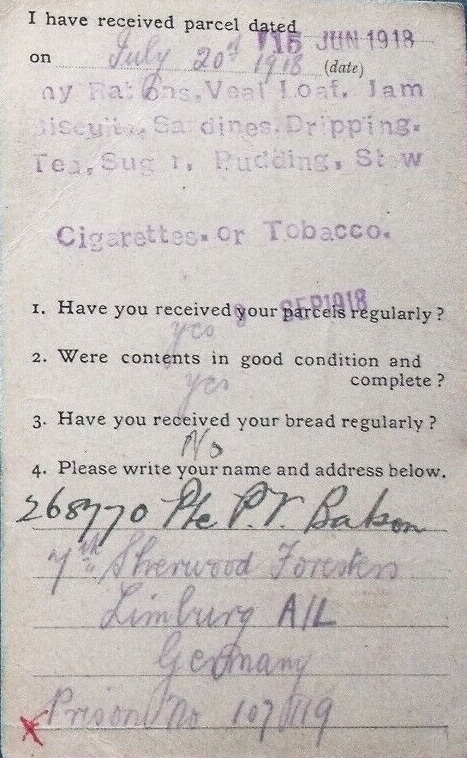 I have received parcel dated 15 JUN 1918
on July 20th 1918 (date)
ny Rations, Veal Loaf. Jam
Biscuits, Sardines. Dripping.
Tea, Sugar, Pudding, Stew
Cigarettes. or Tobacco.
1. Have you received your parcels regularly?
yes 9 SEP 1918
2. Were contents in good condition and
complete?
yes
3. Have you received your bread regularly?
No
4. Please write your name and address below.
268770 Pte P.V. Batson
7th Sherwood Foresters
Limburg A/L
Germany
X Prison No 107119